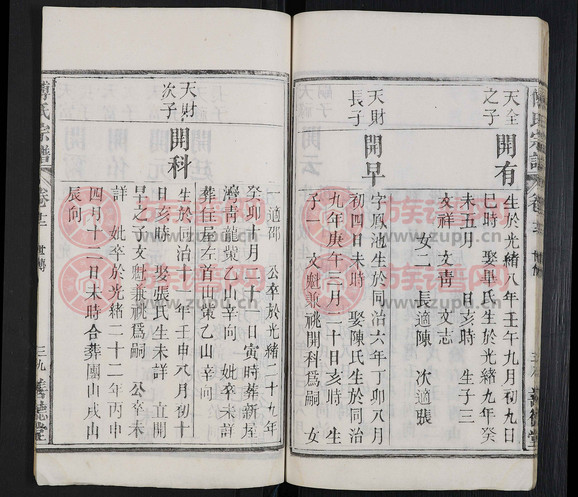 天全
之子
開有
生於光緒八年壬午九月初九日
巳時 娶畢氏生於光緒九年癸
未五月 日亥時 生子三
文祥 文青 文志
女二 長適陳 次適張
天財
長子
開早
字鳳池生於同治六年丁卯八月
初四日未時 娶陳氏生於同治
九年庚午三月二十日亥時 生
子一 文魁兼祧開科爲嗣 女
一適邵 公卒於光緒二十九年
癸卯十月二十一日寅時葬新屋
灣青龍紫乙山辛向 妣卒未詳
葬住屋左首山紫乙山辛向
天財
次子
開科
生於同治十一年壬申八月初十
日亥時 娶張氏生未詳 立開
早之子文魁兼祧爲嗣 公卒未
詳 妣卒於光緒二十二年丙申
四月十二日未時合葬團山戌山
辰向
傅氏宗譜
三九
善德堂